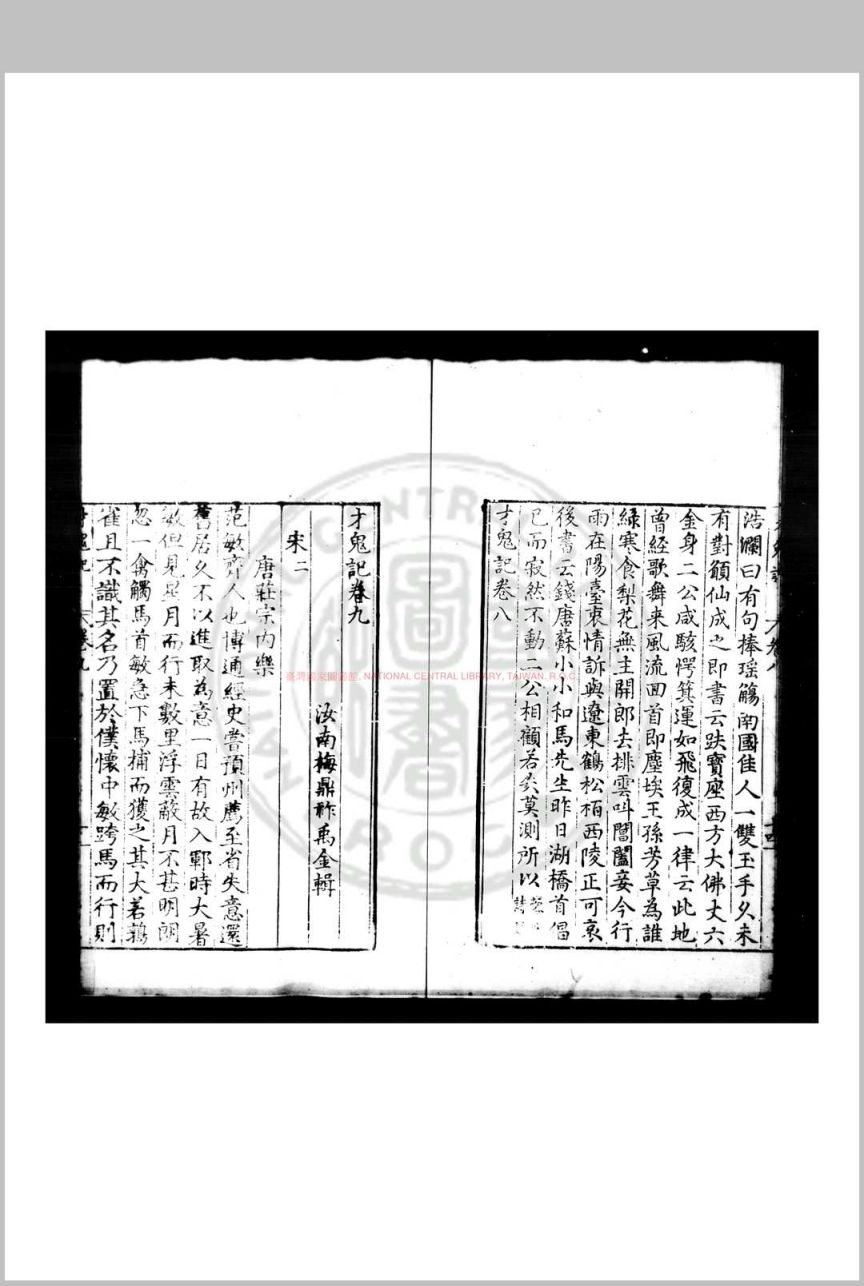 浩瀾曰有句捧瑶觴南國佳人一雙玉手久未
有對頷仙成之即書云趺寶座西方大佛丈六
金身二公咸駭愕箕運如飛復成一律云此地
曾經歌舞来風流回首即塵埃王孫芳草為誰
緑寒食梨花無主開郎去排雲叫閶闔妾今行
雨在陽臺衷情訴與遼東鶴松栢西陵正可哀
後書云錢唐蘇小小和馬先生昨日湖橋首倡
已而寂然不動二公相顧若失莫測所以
才鬼記卷八
才鬼記卷九
汝南梅鼎祚禹金輯
宋二
唐莊宗内樂
范敏齊人也博通經史嘗預州薦至省失意還
舊居久不以進取為意一日有故入鄆時大暑
敏但見星月而行未數里浮雲蔽月不甚明朗
忽一禽觸馬首敏急下馬捕而獲之其大若鵶
雀且不識其名乃置於僕懷中敏跨馬而行則
臺灣國家圖書館, NATIONAL CENTRAL LIBRARY, TAIWAN, R.O.C